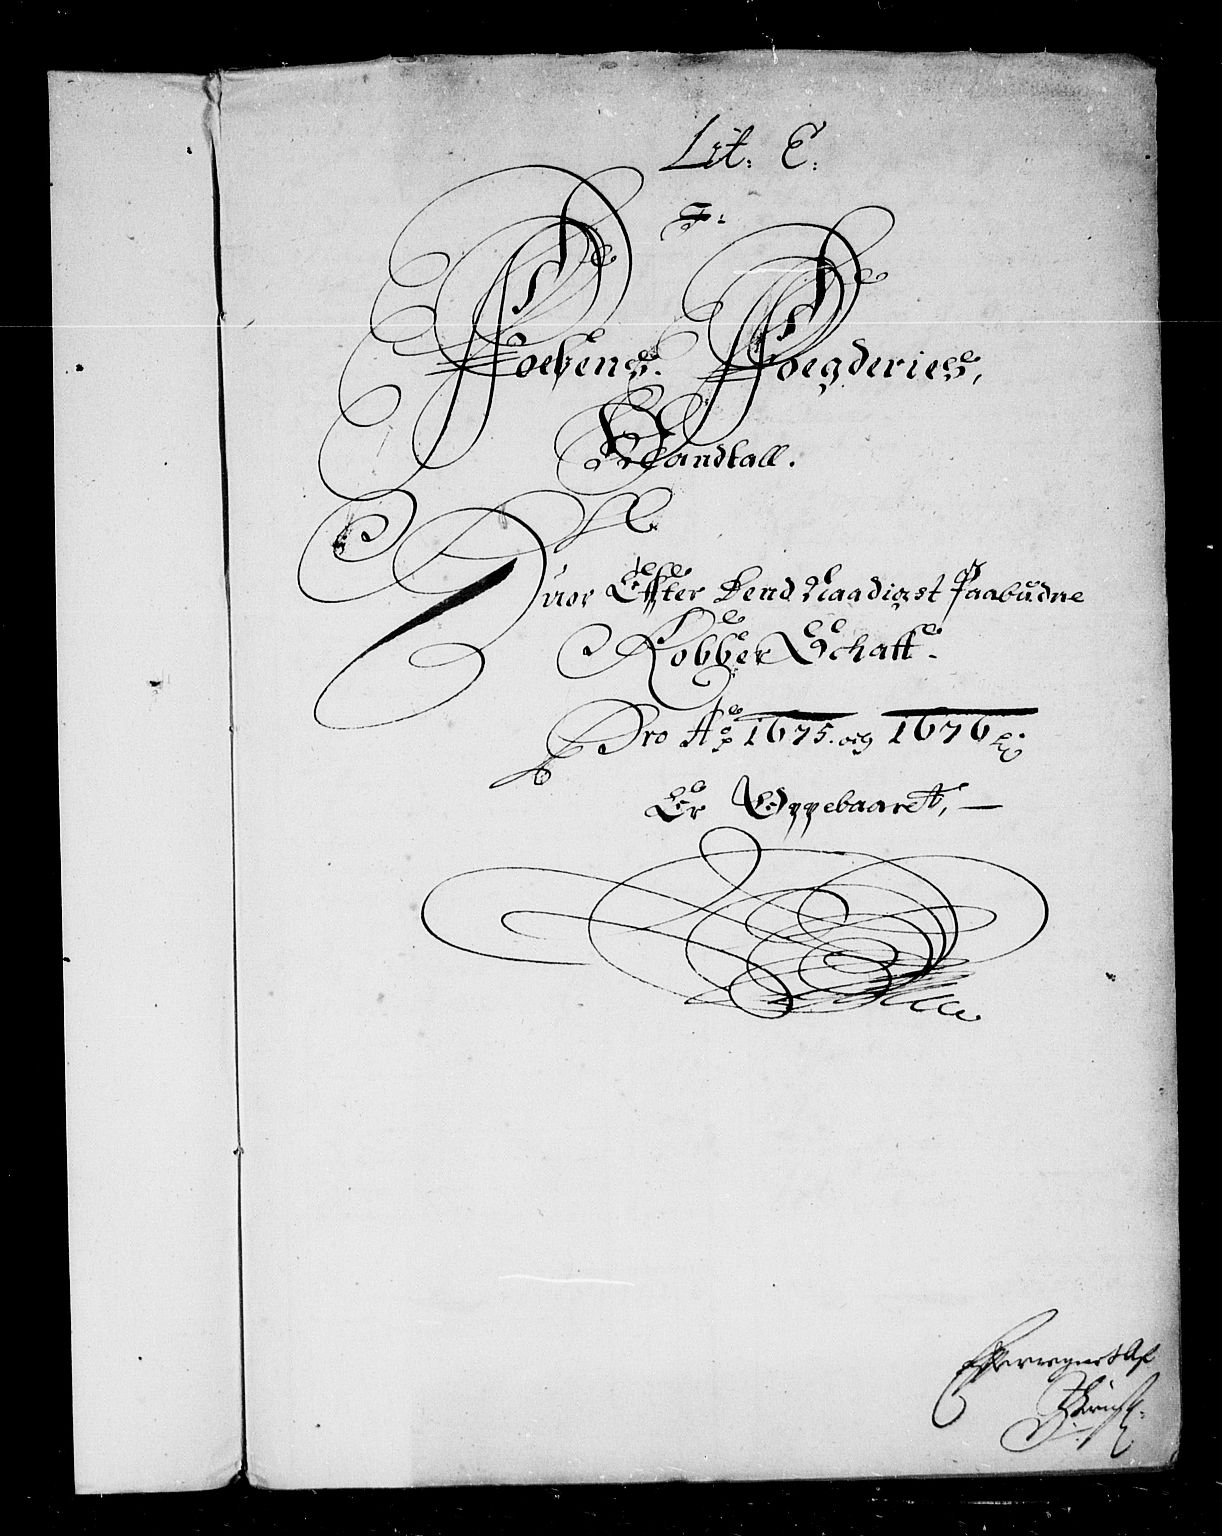 Lit: E:
Foesens. Foegderies,
Mandtall.
Huor Effter dend Naadigst Paabudne
Kobber Schatt.
Pro A:o 1675. og 1676
Er Oppebaaret,
Effterregnet Af